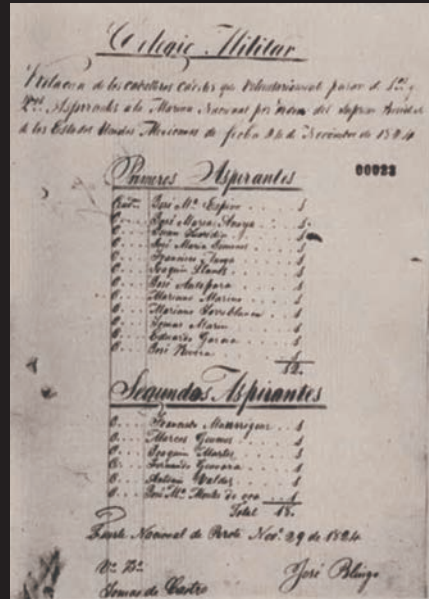 Colegio Militar
Relacion de los caballeros cadetes que voluntariamente pasan de 1os y
2os Aspirantes a la Marina Nacional por orden del Supremo
de los Estados Unidos Mexicanos de fecha de Noviembre de 1824
Primeros Aspirantes
00023
José Ma. Espino . . . 1
C. . . . José Maria Anaya . . 1
C. . . . Juan . . 1
C. . . . José Maria . . 1
C. . . . Francisco . . 1
C. . . . Joaquin Llanes . . 1
C. . . . José Antepara . . 1
C. . . . Mariano Marino . . 1
C. . . . Mariano Torreblanca . . 1
C. . . . Tomas Marin . . 1
C. . . . Eduardo Garcia . . 1
C. . . . José Rivera . . 1
12.
Segundos Aspirantes
C. . . . Francisco Manrriquez . . 1
C. . . . Marcos . . . 1
C. . . . Joaquin . . . 1
C. . . . Fernando Guevara . . . 1
C. . . . Antonio Valdes . . . 1
C. . . . José Ma. Montes de oca . . 1
Total 18.
Fuerte Nacional de Perote Nove. 29 de 1824
Vo. Bo.
Tomas de Castro
José